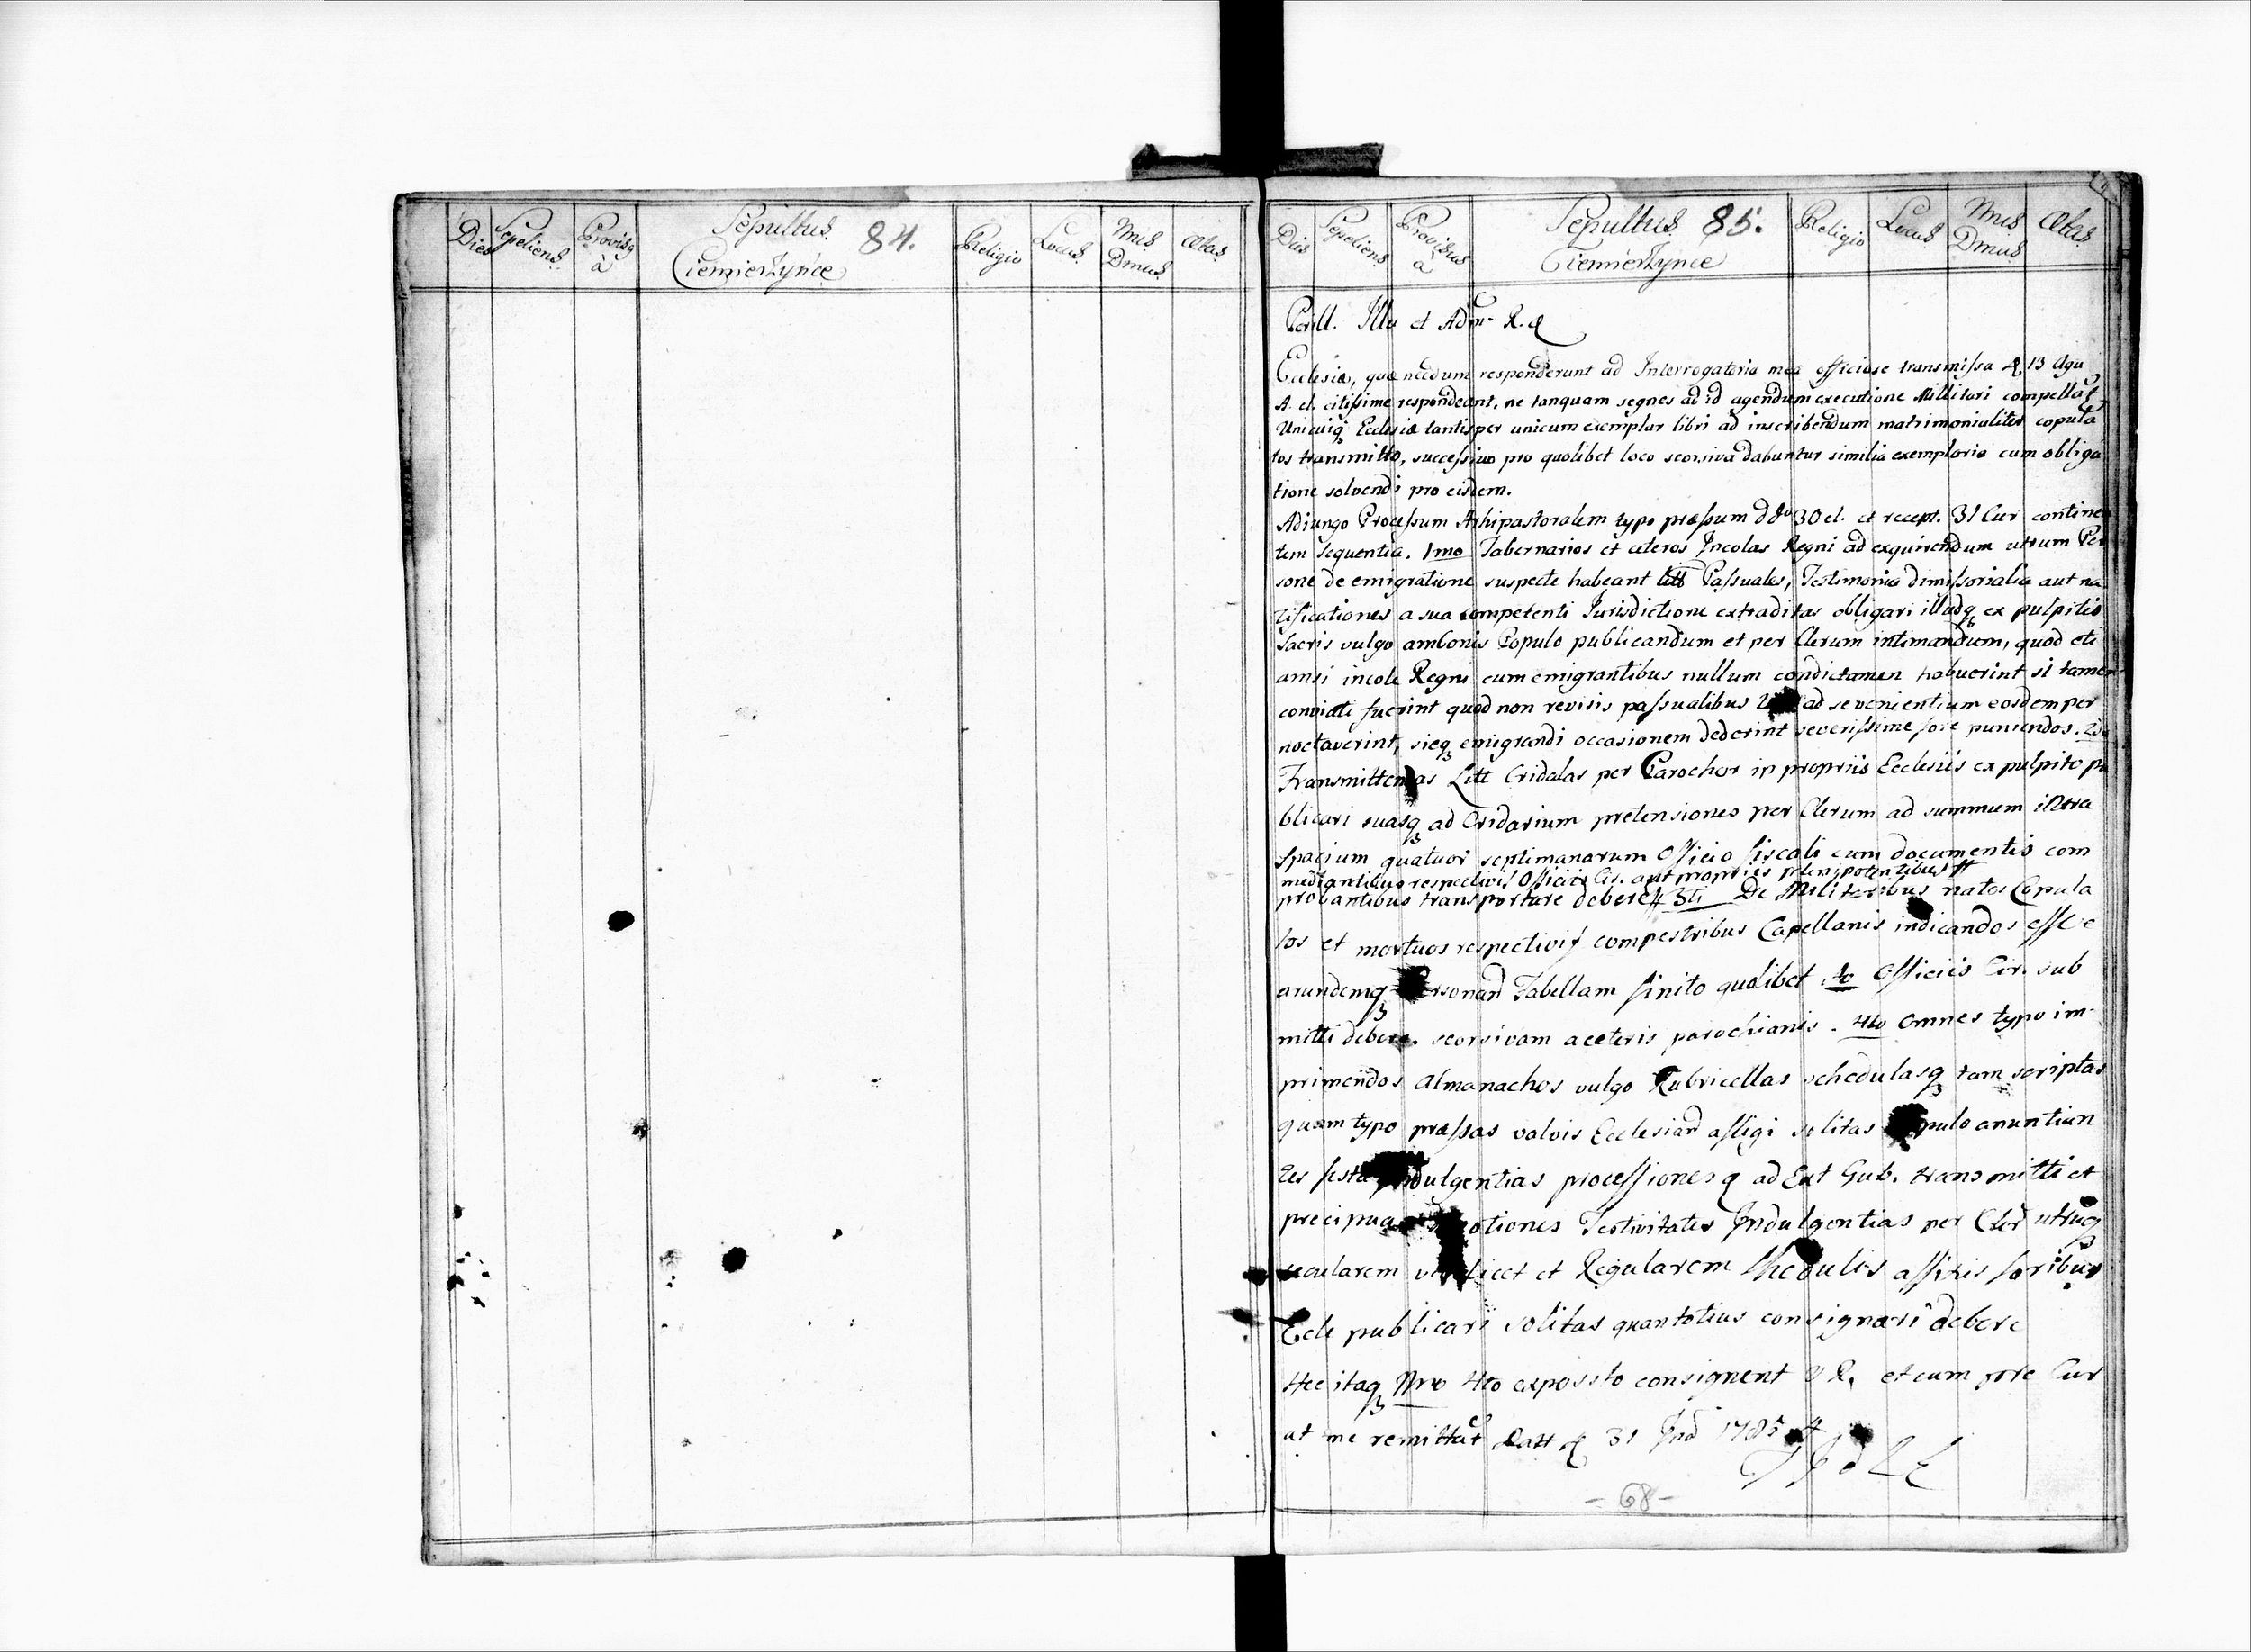 Dies Sepeliens Provisq à Sepultus 84. Ciemierzynce Religio Locus Nrus Dmus Ætas
Dies Sepeliens Provisus à Sepultus 85. Ciemierzynce Religio Locus Nrus Dmus Ætas
Perill. Illu et Adm R. d
Ecclesiæ, quæ necdum responderunt ad Interrogatoria mea officiose transmissa 13 Agu
A. cl. citissime respondeant, ne tanquam segnes ad id agendum executione Millitari compellat
Unicuiq Ecclesiæ tantisper unicum exemplar libri ad inscribendum matrimonialiter copula
tos transmitto, successive pro quolibet loco scorsiva dabuntur similia exemplaria cum obliga
tione solvendi pro eisdem.
Adiungo Processum Arhipastoralem typo præssum ddo 30 cl. et recept. 31 Cur continen
tem sequentia. 1mo Tabernarios et ceteros Incolas Regni ad exquirendum utrum Per
sone de emigratione suspecte habeant litt Passuales, Testimonia dimissorialia aut na
tificationes a sua competenti Jurisdictione extraditas obligari illudq ex pulpitis
sacris vulgo ambonis Populo publicandum et per Clerum intimandum, quod eti
amsi incole Regni cum emigrantibus nullum condictamen habuerint si tamen
conviati fuerint quod non revisis passualibus ad se venientium eosdem per
noctaverint, sicq emigrandi occasionem dederint severissime fore puniendos. 2do
Transmittendas Litt Cridales per Parochos in propriis Ecclesiis ex pulpito pu
blicari suasq ad Cridarium pretensiones per Clerum ad summum intra
spacium quatuor septimanarum Officio fiscali cum documentis com
mediantibus respectivis Officiis Cir. aut propriis plenipotentibus #
probantibus transportare debere # 3ti De Militaribus natos Copula
tos et mortuos respectivis compestribus Capellanis indicandos esse e
arundemq Personar Tabellam finito quolibet Officiis Cir. sub
mitti debere. scorsivam a ceteris parochianis. 4to Omnes typo im
primendos Almanachos vulgo Rubricellas schedulasq tam scriptas
quam typo præssas valvis Ecclesiar affigi solitas Populo anuntian
tes festa Indulgentias processionesq ad Ext Gub. transmitti et
precipuas Devotiones Festivitates Indulgentias per Cler utruq
secularem videlicet et Regularem shedulis affixis foribus
Ecle publicari solitas quantotius consignari debere
Hec itaq Nro 4to exposito consignent V R. et cum pre Cur
at me remittat Datt 31 Jnd 1785
- 68 -